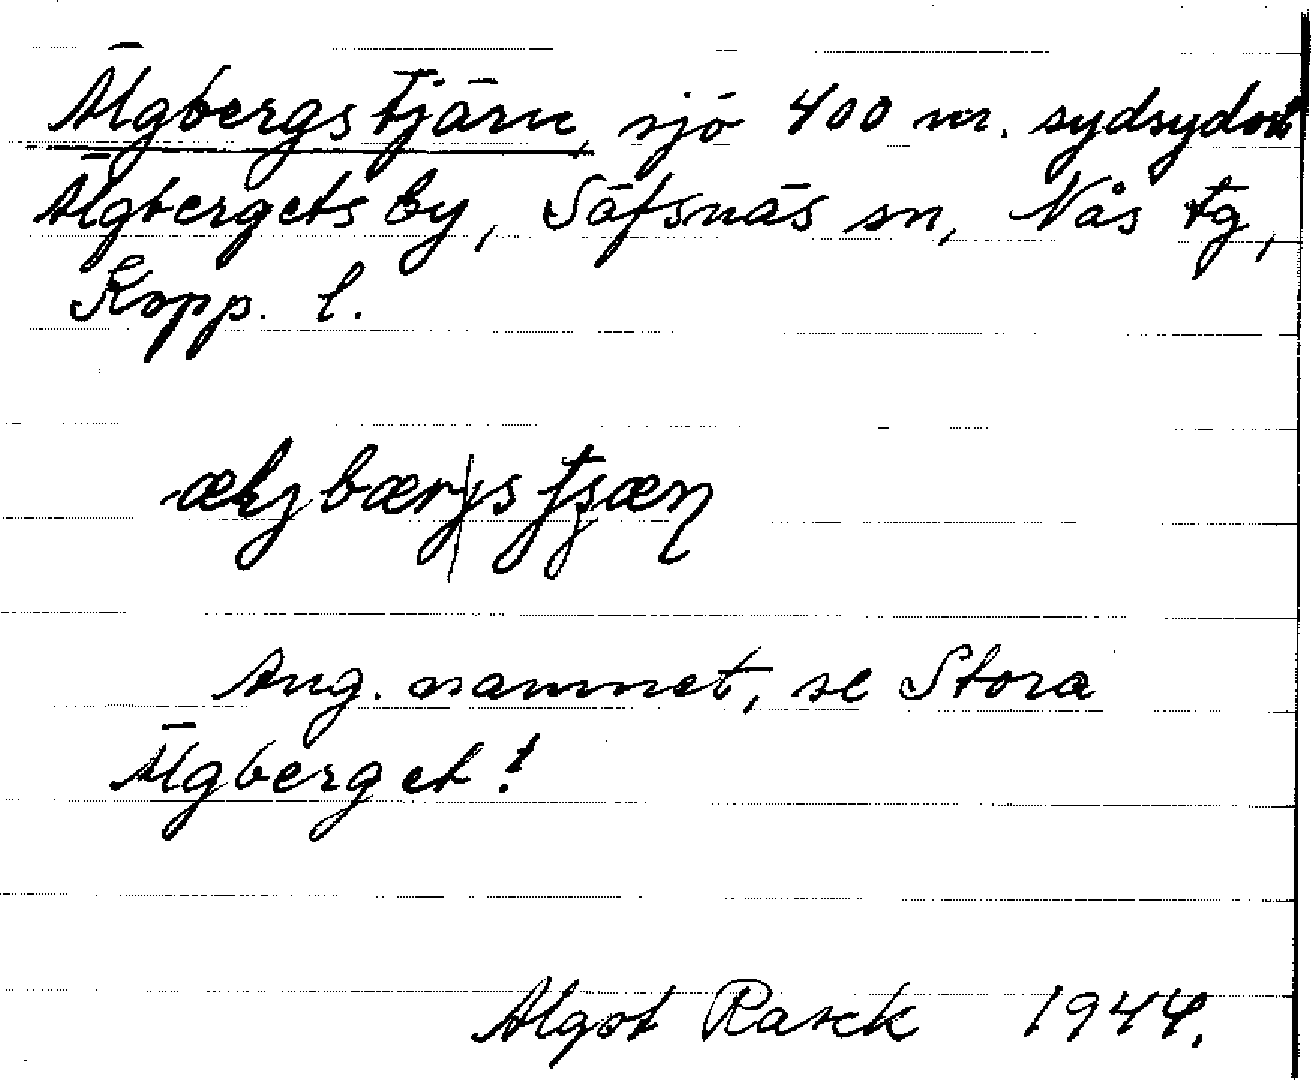 Älgbergstjärn, sjö 400 m. sydsydost
Älgbergets by, Säfsnäs sn, Nås tg,
Kopp. l.
Ang. namnet, se Stora
Älgberget!
Algot Rask 1944.